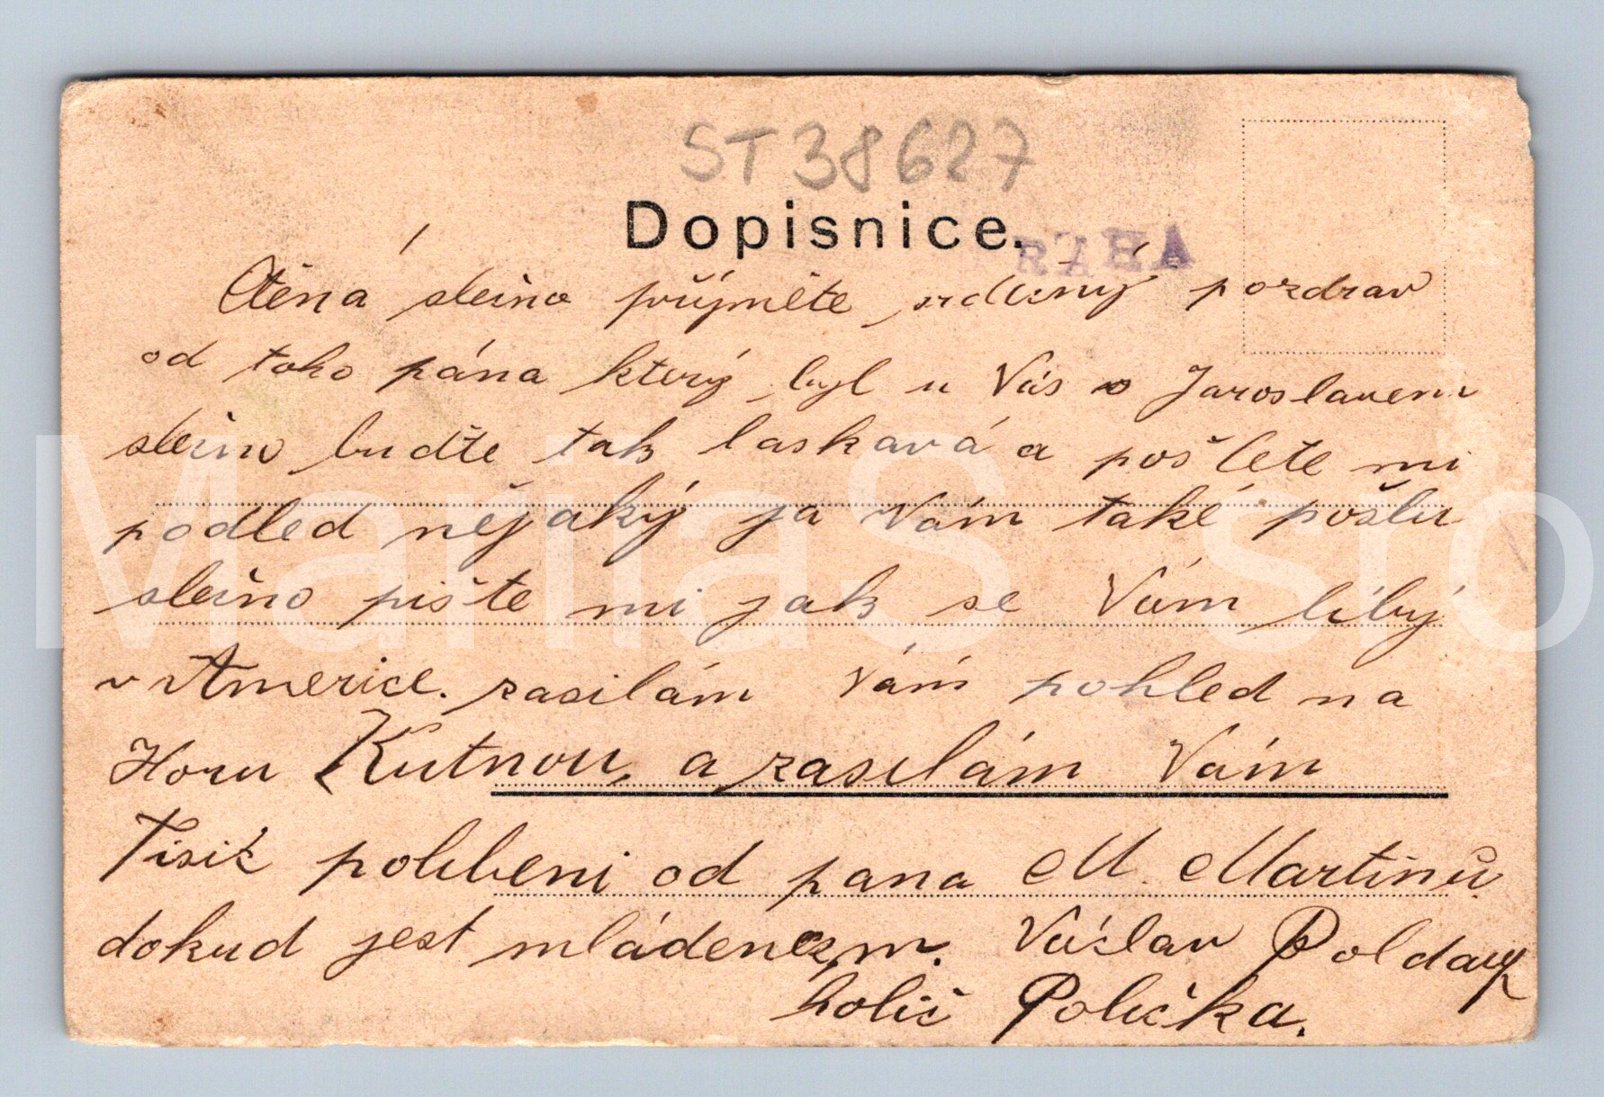 ST38627
Dopisnice.
PRAHA
Ctěná slečno přijměte srdečný pozdrav
od toho pána který byl u Vás s Jaroslavem
slečno buďte tak laskavá a pošlete mi
podled nějaký ja Vám také pošlu
slečno pište mi jak se Vám líbý
v Americe. zasilám Vám pohled na
Horu Kutnou, a zasílám Vám
Tisíc polibeni od pana M. Martinů
dokud jest mládenczm. Václav Poldauf
holič Polička.
MariaS sro